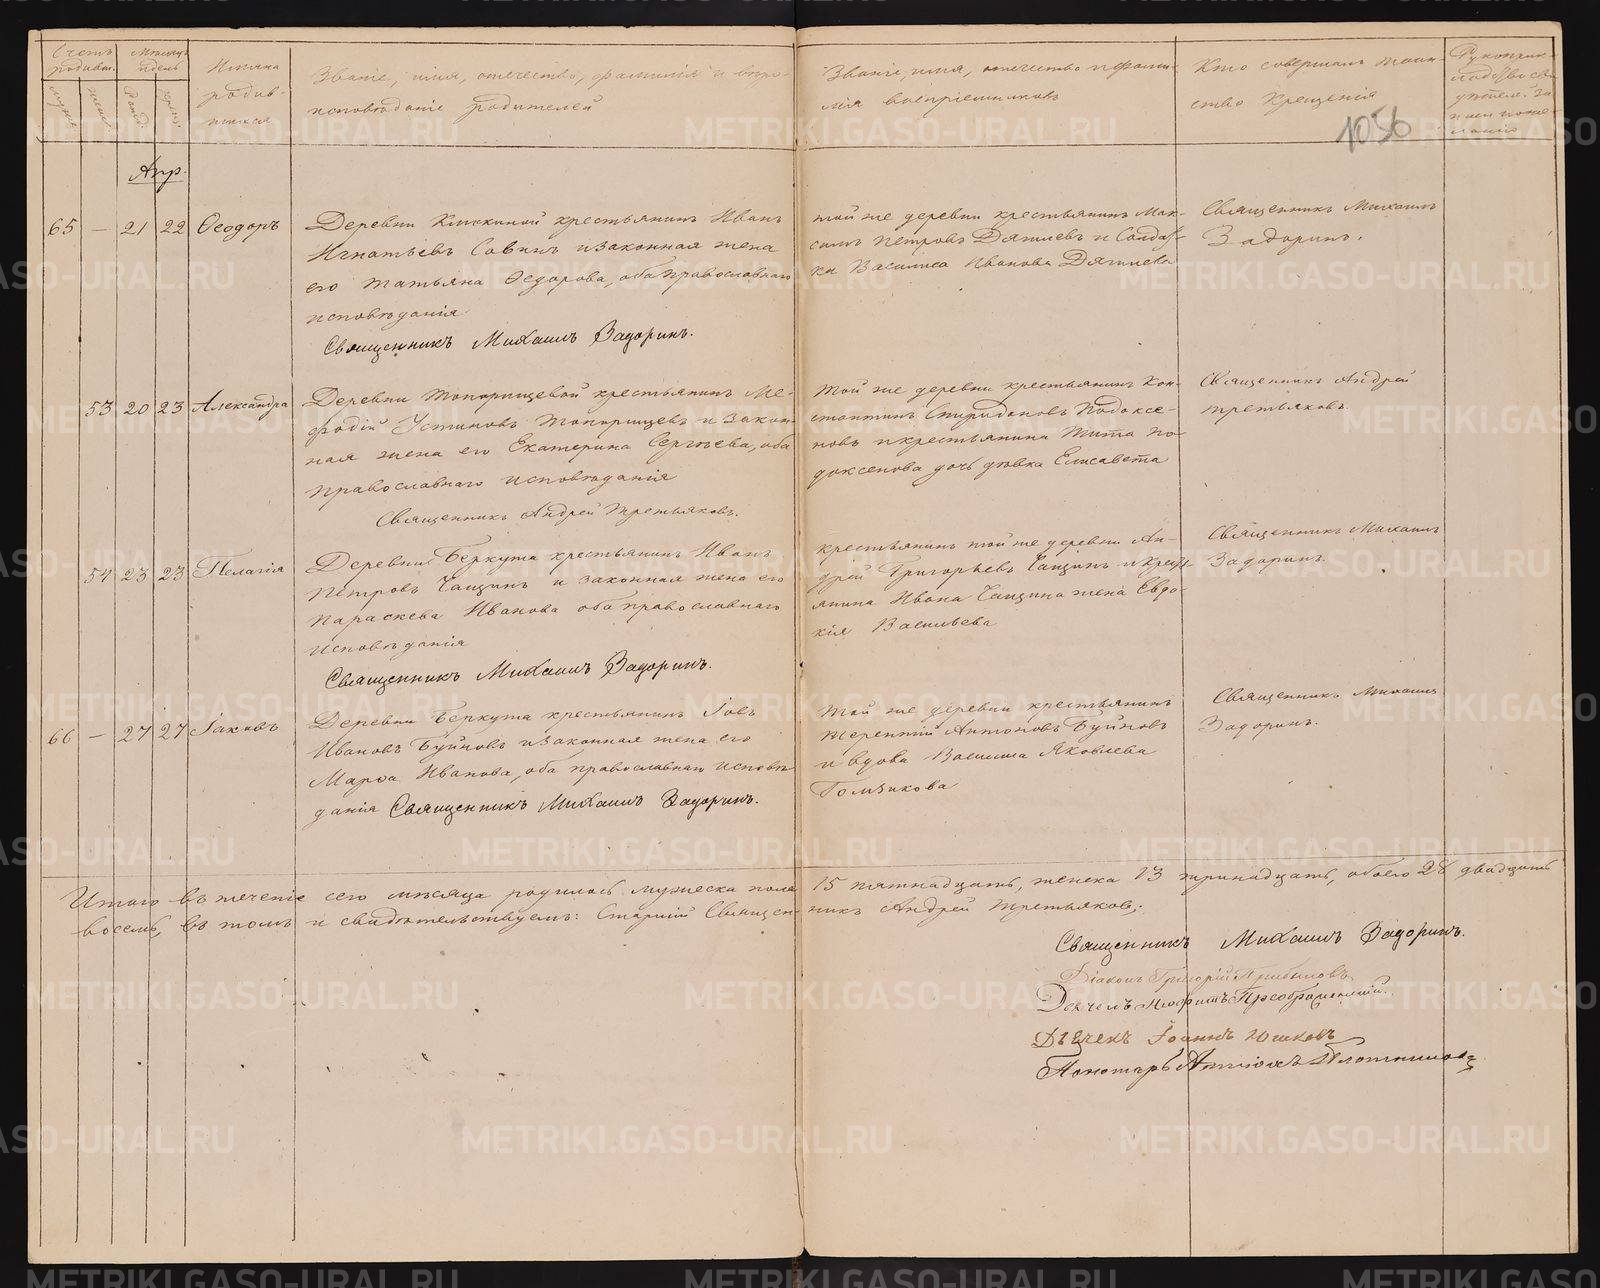 Счетъ родивш.
мужеска
женск.
Мѣсяцъ и день
Рожд.
крещ.
Имяна родив-
шихся
Званіе, имя, отчество, фамилія и вѣро-
исповѣданіе родителей
Званіе, имя, отчество и фами-
лія воспріемниковъ
Кто совершалъ таин-
ство Крещенія
Рукоприк-
ладство сви-
дѣтелей за-
писи по же-
ланію
1056
Апр.
65 — 21 22 Ѳеодоръ
Деревни Клюкиной крестьянинъ Иванъ
Игнатьевъ Савинъ и законная жена
его Татьяна Ѳедорова, оба православнаго
исповѣданія
Священникъ Михаилъ Задоринъ.
той же деревни крестьянинъ Мак-
симъ Петровъ Дягилевъ и Солдат-
ка Василиса Иванова Дягилева
Священникъ Михаилъ
Задоринъ.
53 20 23 Александра
Деревни Топорищевой крестьянинъ Ме-
фодій Устиновъ Топорищевъ и закон-
ная жена его Екатерина Сергѣева, оба
православнаго исповѣданія
Священникъ Андрей Третьяковъ.
Той же деревни крестьянинъ Кон-
стантинъ Спиридоновъ Подоксе-
новъ и крестьянина Тита По-
доксенова дочь дѣвка Елисавета
Священникъ Андрей
Третьяковъ.
54 23 23 Пелагія
Деревни Беркута крестьянинъ Иванъ
Петровъ Чащинъ и законная жена его
Параскева Иванова оба православнаго
исповѣданія
Священникъ Михаилъ Задоринъ.
крестьянинъ той же деревни Ан-
дрей Григорьевъ Чащинъ и крест-
янина Ивана Чащина жена Евдо-
кія Васильева
Священникъ Михаилъ
Задоринъ.
66 — 27 27 Іаковъ
Деревни Беркута крестьянинъ Іовъ
Ивановъ Буйновъ и законная жена его
Марѳа Иванова, оба православнаго исповѣ-
данія Священникъ Михаилъ Задоринъ.
Той же деревни крестьянинъ
Терентій Антоновъ Буйновъ
и вдова Василиса Яковлева
Голзикова
Священникъ Михаилъ
Задоринъ.
Итого въ теченіе сего мѣсяца родилось мужеска пола 15 пятнадцать, женска 13 тринадцать, обоего 28 двадцать
восемь, въ томъ и свидѣтельствуемъ: Старшій Священ-никъ Андрей Третьяковъ;
Священникъ Михаилъ Задоринъ.
Діаконъ Григорій Прибыловъ
Дьячекъ Неофитъ Преображенскій.
Дьячекъ Іоаннъ Юшковъ
Пономарь Плотниковъ
METRIKI.GASO-URAL.RU